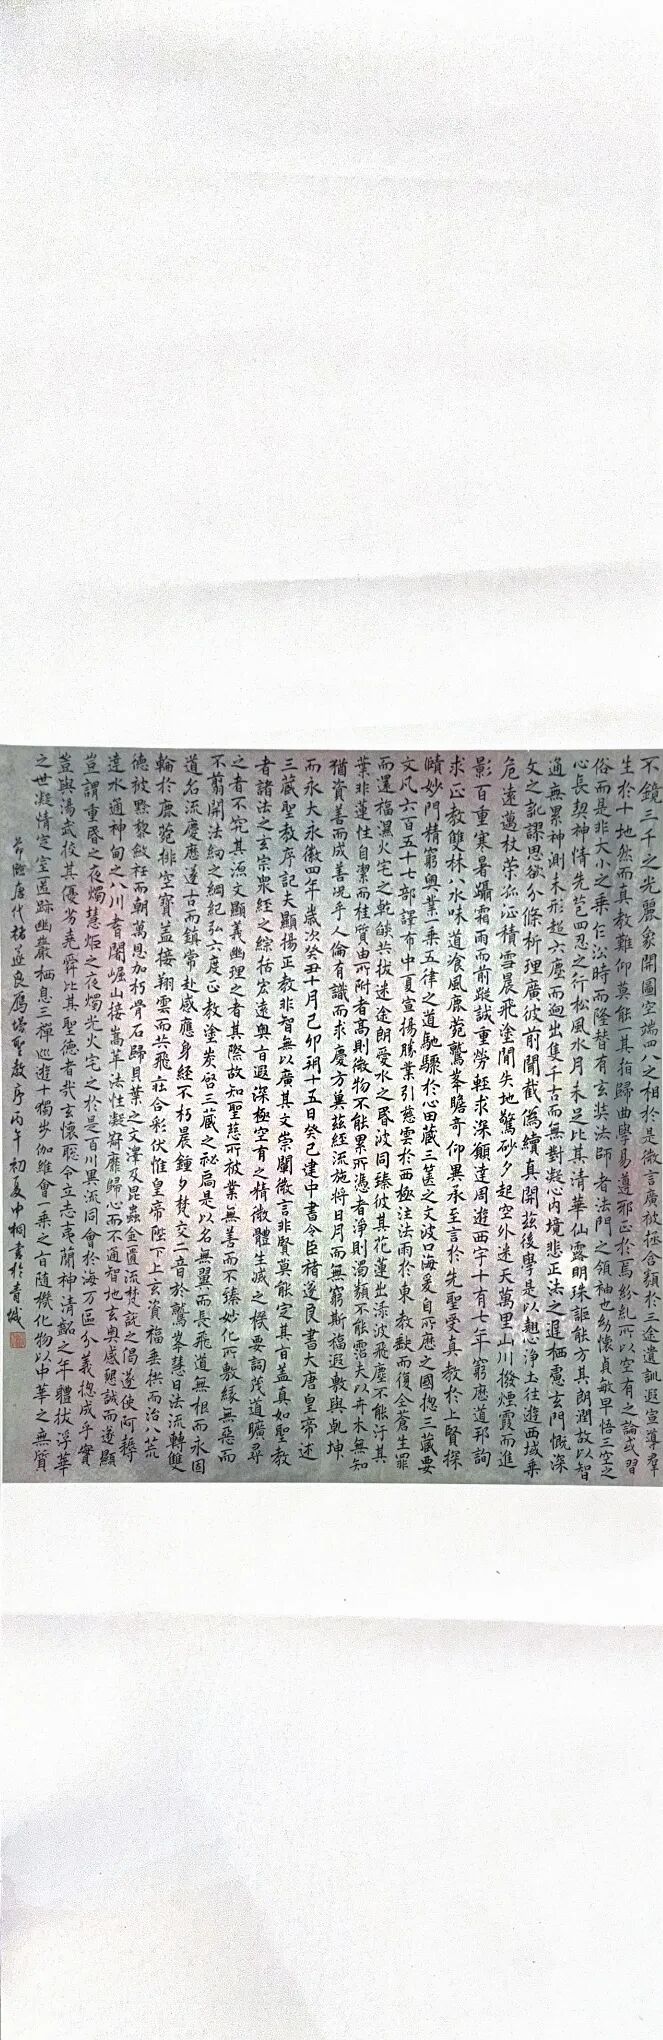 不鏡三千之光麗象開圖空端四八之相於是微言廣被拯含類於三途遺訓遐宣導羣
生於十地然而真教難仰莫能一其指歸曲學易遵邪正於焉紛糺所以空有之論或習
俗而是非大小之乘乍沿時而隆替有玄奘法師者法門之領袖也幼懷貞敏早悟三空之
心長契神情先苞四忍之行松風水月未足比其清華仙露明珠詎能方其朗潤故以智
通無累神測未形超六塵而迥出隻千古而無對凝心內境悲正法之遲栖慮玄門慨深
文之訛謬思欲分條析理廣彼前聞截偽續真開茲後學是以翹淨土往遊西域乘
危遠邁杖策孤征積雪晨飛塗間失地驚砂夕起空外迷天萬里山川撥煙霞而進
影百重寒暑躡霜雨而前蹤誠重勞輕求深願達周遊西宇十有七年窮歷道邦詢
求正教雙林八水味道飡風鹿菀鷲峯瞻奇仰異承至言於先聖受真教於上賢探
賾妙門精窮奧業一乘五律之道馳驟於心田藏三篋之文波口海爰自所歷之國揔三藏要
文凡六百五十七部譯布中夏宣揚勝業引慈雲於西極注法雨於東教缺而復全蒼生罪
而還福濕火宅之乾燄共拔迷途朗愛水之昏波同臻彼其花蓮出淥波飛塵不能汙其
葉非蓮性自潔而桂質由所附者高則微物不能累所憑者淨則濁類不能霑夫以卉木無知
猶資善而成善況乎人倫有識而求慶方冀茲經流施將日月而無窮斯福遐敷與乾坤
而永大永徽四年歲次癸丑十月己卯朔十五日癸巳建中書令臣褚遂良書大唐皇帝述
三藏聖教序記夫顯揚正教非智無以廣其文崇闡微言非賢莫能定其旨蓋真如聖教
者諸法之玄宗衆經之綜括宏遠奧旨遐深極空有之精微體生滅之機要詞茂道曠尋
之者不究其源文顯義幽理之者其際故知聖慈所被業無善而不臻妙化所敷緣無惡而
不翦開法網之綱紀弘六度正教塗炭啓三藏之祕扃是以名無翼而長飛道無根而永固
道名流慶歷邃古而鎮常赴感應身經不朽晨鍾夕梵交二音於鷲峯慧日法流轉雙
輪於鹿菀排空寶蓋接翔雲而共飛莊合彩伏惟皇帝陛下上玄資福垂拱而治八荒
德被黔黎斂衽而朝萬恩加朽骨石歸貝葉之文澤及昆蟲金匱流梵說之偈遂使阿耨
達水通神甸之八川耆闍崛山接嵩華法性凝寂靡歸心而不通智地玄奧感懇誠而遂顯
豈謂重昏之夜燭慧炬之夜燭光火宅之於是百川異流同會於海万區分義揔成乎實
豈與湯武挍其優劣堯舜比其聖德者哉玄懷聡令立志夷蕳神清齠之年體拔浮華
之世凝情定室匿跡幽巖栖息三禪巡遊十獨步伽維會一乘之旨随機化物以中華之無質
節臨唐代褚遂良鴈塔聖教序丙午初夏中桐書於青城